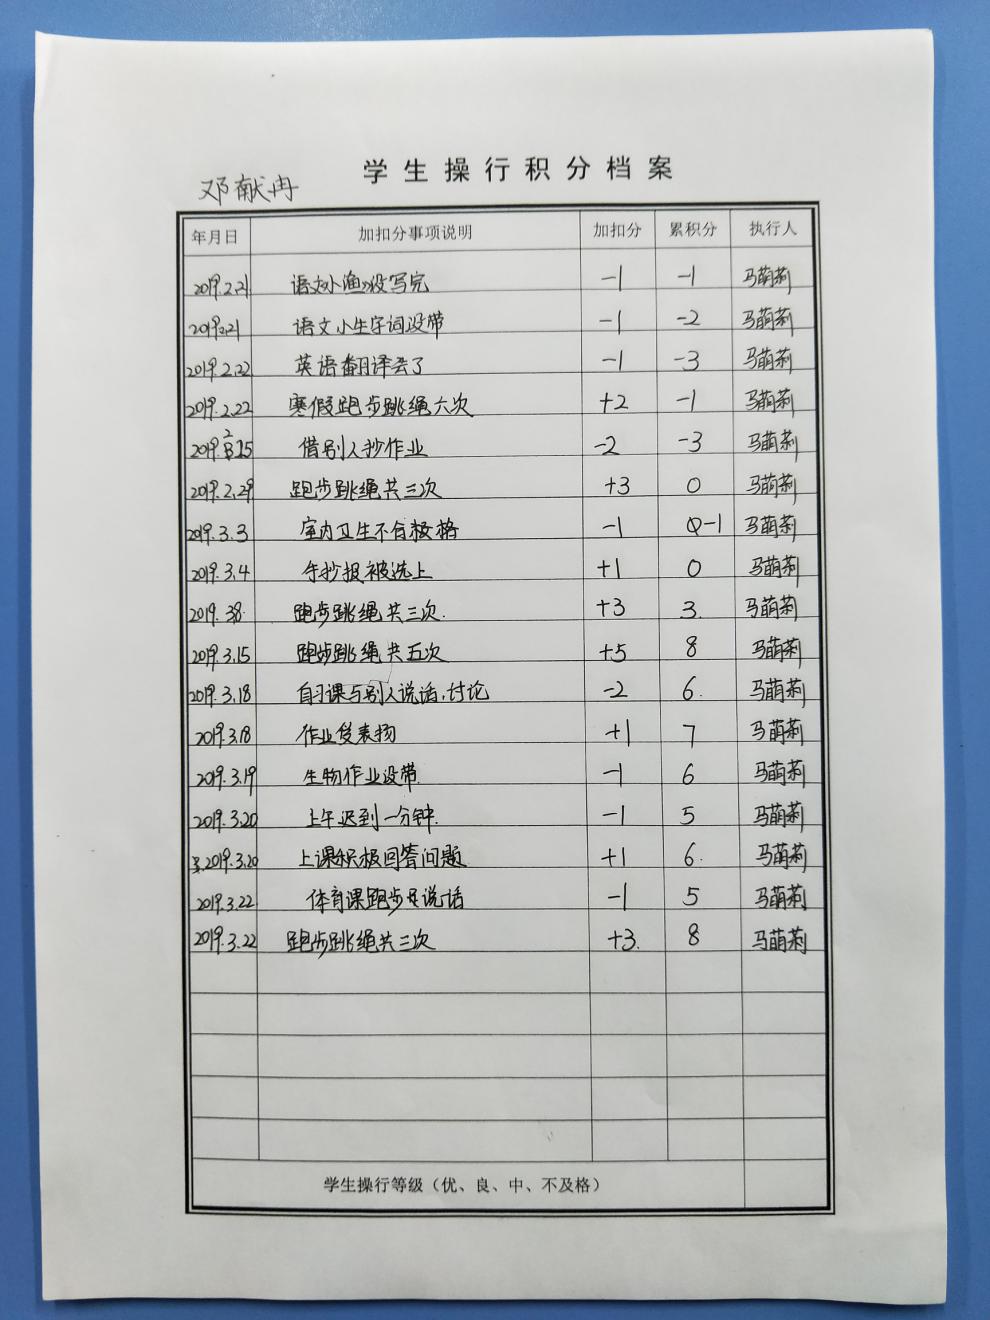 学生操行积分档案
邓献冉
年月日 加扣分事项说明 加扣分 累积分 执行人
2019.2.21 语文小渔没写完 -1 -1 马萌莉
2019.2.21 语文小生字词没带 -1 -2 马萌莉
2019.2.22 英语翻译丢了 -1 -3 马萌莉
2019.2.22 寒假跑步跳绳六次 +2 -1 马萌莉
2019.2.25 借别人抄作业 -2 -3 马萌莉
2019.2.29 跑步跳绳共三次 +3 0 马萌莉
2019.3.3 室内卫生不合格 -1 -1 马萌莉
2019.3.4 手抄报被选上 +1 0 马萌莉
2019.3.8 跑步跳绳共三次. +3 3. 马萌莉
2019.3.15 跑步跳绳共五次 +5 8 马萌莉
2019.3.18 自习课与别人说话,讨论 -2 6. 马萌莉
2019.3.18 作业受表扬 +1 7 马萌莉
2019.3.19 生物作业没带. -1 6 马萌莉
2019.3.20 上午迟到一分钟. -1 5 马萌莉
2019.3.20 上课积极回答问题 +1 6. 马萌莉
2019.3.22 体育课跑步说话 -1 5 马萌莉
2019.3.22 跑步跳绳共三次 +3. 8 马萌莉
学生操行等级（优、良、中、不及格）